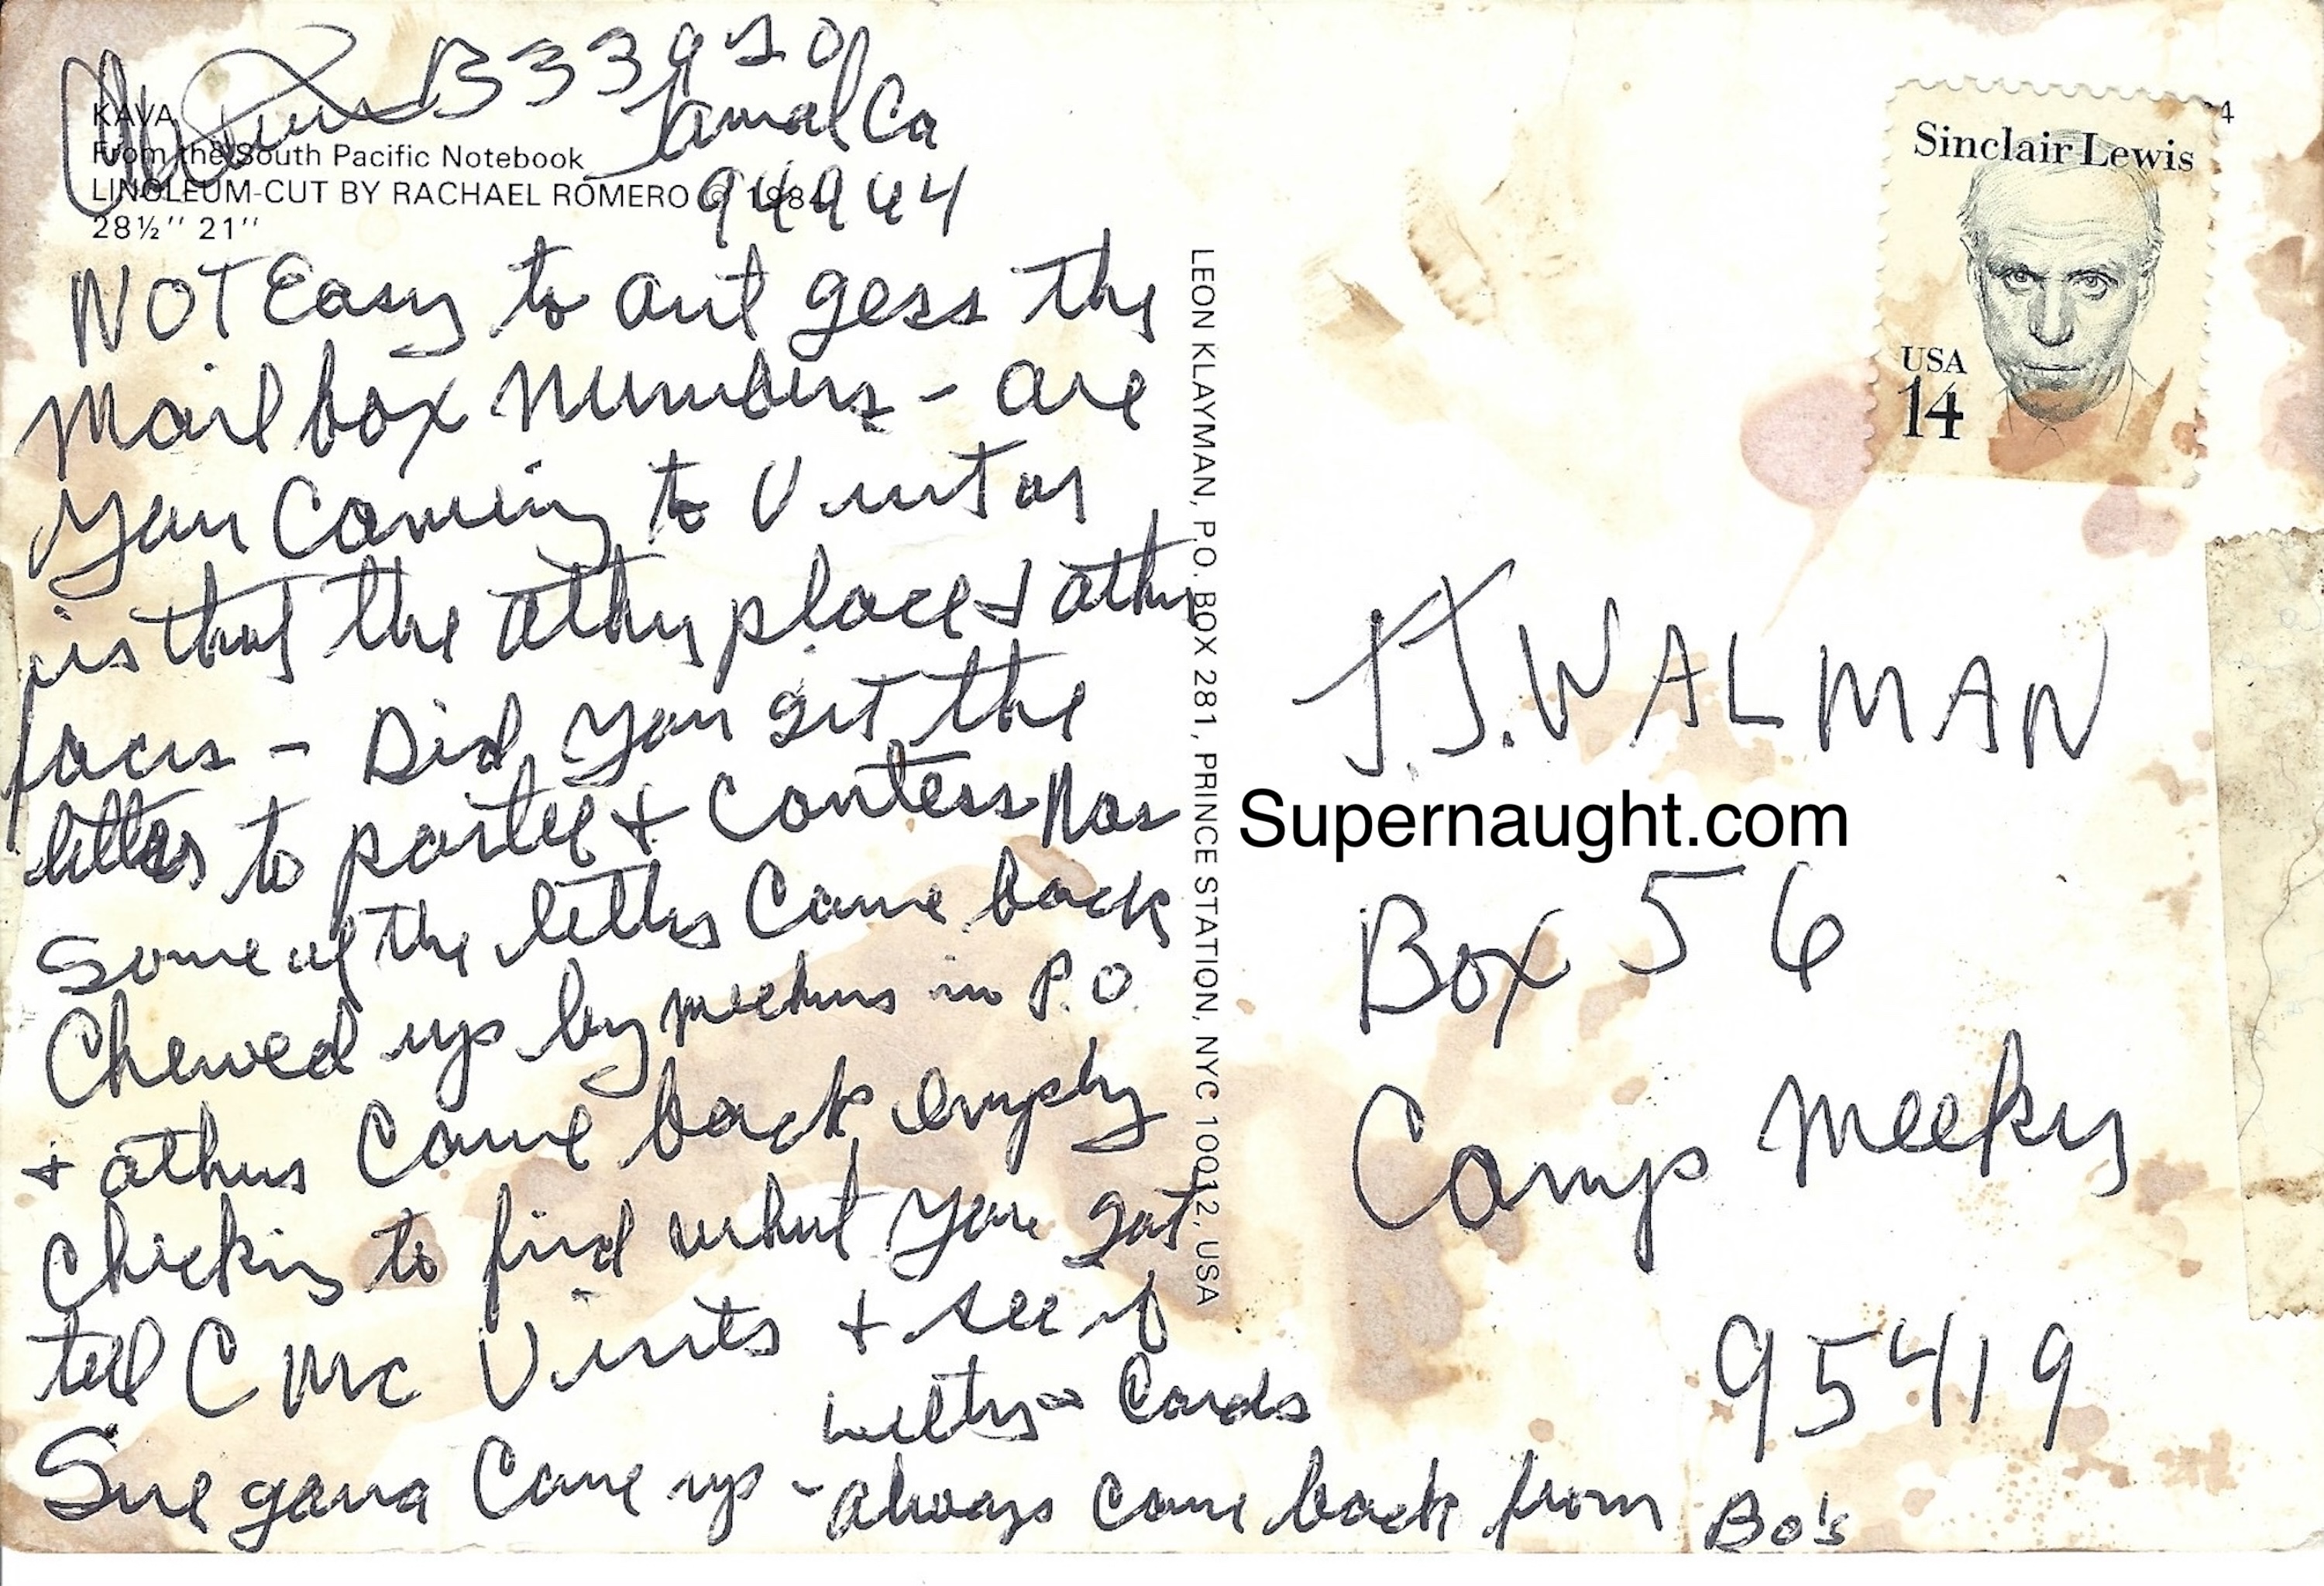 B33920
Tamal Ca
94944
KAVA
From the South Pacific Notebook
LINOLEUM-CUT BY RACHAEL ROMERO © 1984
28½″ 21″
NOT Easy to out gess the
Mail box Numbers - are
you Coming to Visit or
is that the other place & other
faces - Did you get the
letters to
Some of the letters Came back
Chewed up by in P.O.
& others Come back empty
Checking to find what you got
tell CMC Visits & see if
Sue gona Come up - always come back from Bo's
letters Cards
LEON KLAYMAN, P.O. BOX 281, PRINCE STATION, NYC 10012, USA
4
Sinclair Lewis
USA
14
J.J. WALMAN
Supernaught.com
Box 56
Camp Meeker
95419